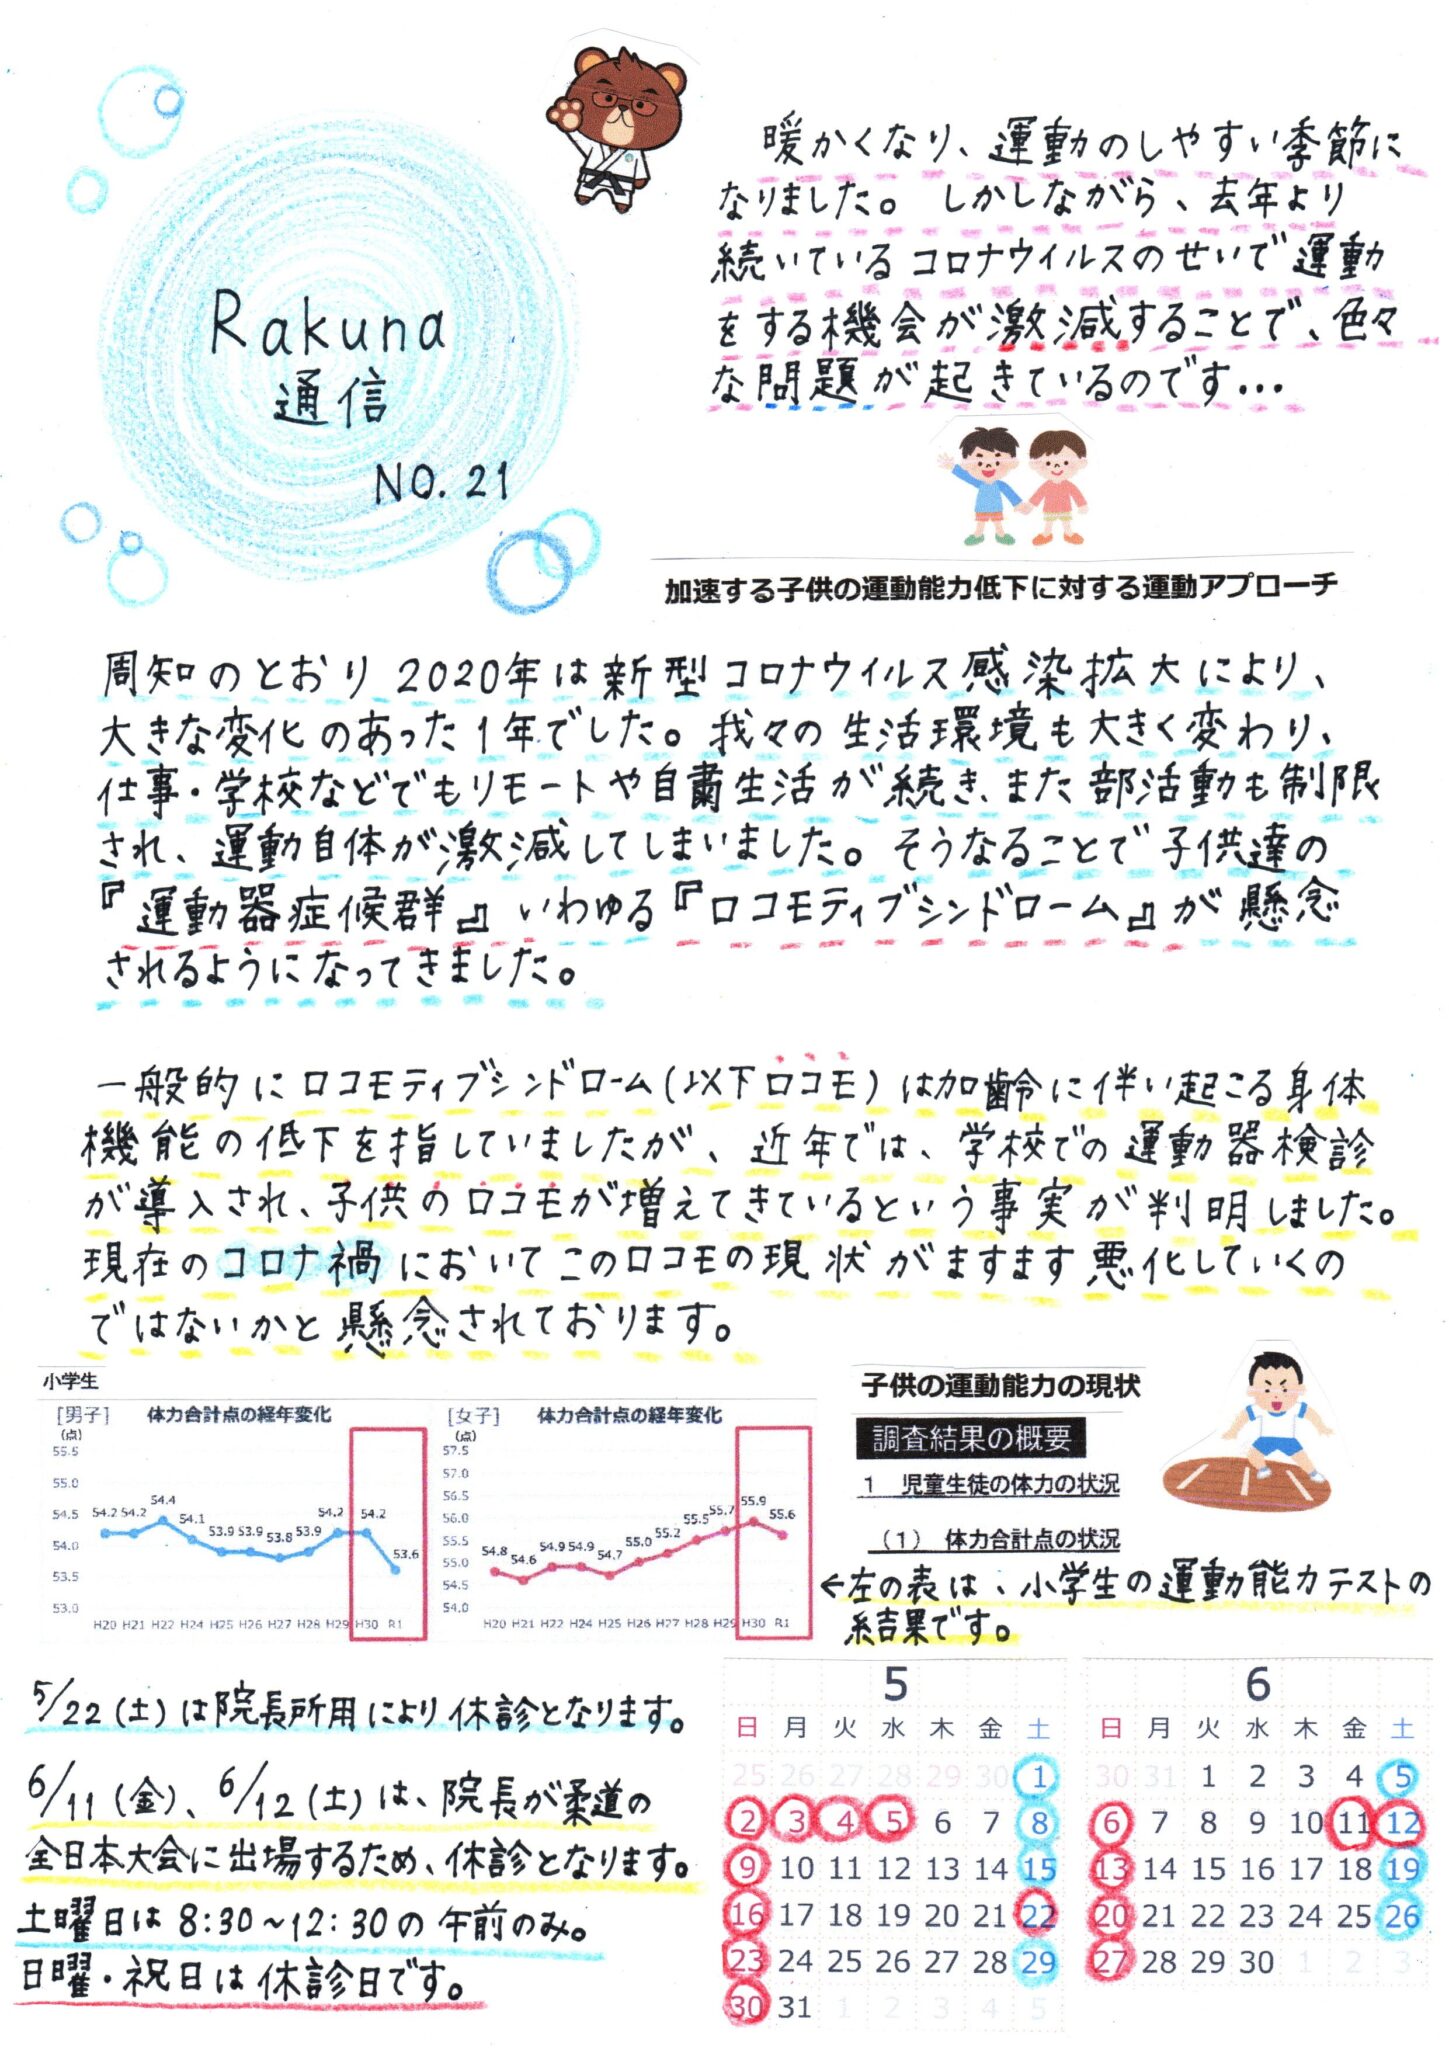 Rakuna
通信
NO. 21
暖かくなり、運動のしやすい季節に
なりました。しかしながら、去年より
続いているコロナウイルスのせいで運動
をする機会が激減することで、色々
な問題が起きているのです...
加速する子供の運動能力低下に対する運動アプローチ
周知のとおり2020年は新型コロナウイルス感染拡大により、
大きな変化のあった1年でした。我々の生活環境も大きく変わり、
仕事・学校などでもリモートや自粛生活が続き、また部活動も制限
され、運動自体が激減してしまいました。そうなることで子供達の
『運動器症候群』いわゆる『ロコモティブシンドローム』が懸念
されるようになってきました。
一般的にロコモティブシンドローム(以下ロコモ)は加齢に伴い起こる身体
機能の低下を指していましたが、近年では、学校での運動器検診
が導入され、子供のロコモが増えてきているという事実が判明しました。
現在のコロナ禍においてこのロコモの現状がますます悪化していくの
ではないかと懸念されております。
小学生
[男子] 体力合計点の経年変化
(点)
55.5
55.0
54.5
54.0
53.5
53.0
54.2 54.2 54.4 54.1 53.9 53.9 53.8 53.9 54.2 54.2 53.6
H20 H21 H22 H24 H25 H26 H27 H28 H29 H30 R1
[女子] 体力合計点の経年変化
(点)
57.5
57.0
56.5
56.0
55.5
55.0
54.5
54.0
54.8 54.6 54.9 54.9 54.7 55.0 55.2 55.5 55.7 55.9 55.6
H20 H21 H22 H24 H25 H26 H27 H28 H29 H30 R1
子供の運動能力の現状
調査結果の概要
1 児童生徒の体力の状況
(1) 体力合計点の状況
←左の表は、小学生の運動能力テストの
結果です。
5/22(土)は院長所用により休診となります。
6/11(金)、6/12(土)は、院長が柔道の
全日本大会に出場するため、休診となります。
土曜日は8:30~12:30の午前のみ。
日曜・祝日は休診日です。
5
日 月 火 水 木 金 土
25 26 27 28 29 30 1
2 3 4 5 6 7 8
9 10 11 12 13 14 15
16 17 18 19 20 21 22
23 24 25 26 27 28 29
30 31 1 2 3 4 5
6
日 月 火 水 木 金 土
30 31 1 2 3 4 5
6 7 8 9 10 11 12
13 14 15 16 17 18 19
20 21 22 23 24 25 26
27 28 29 30 1 2 3